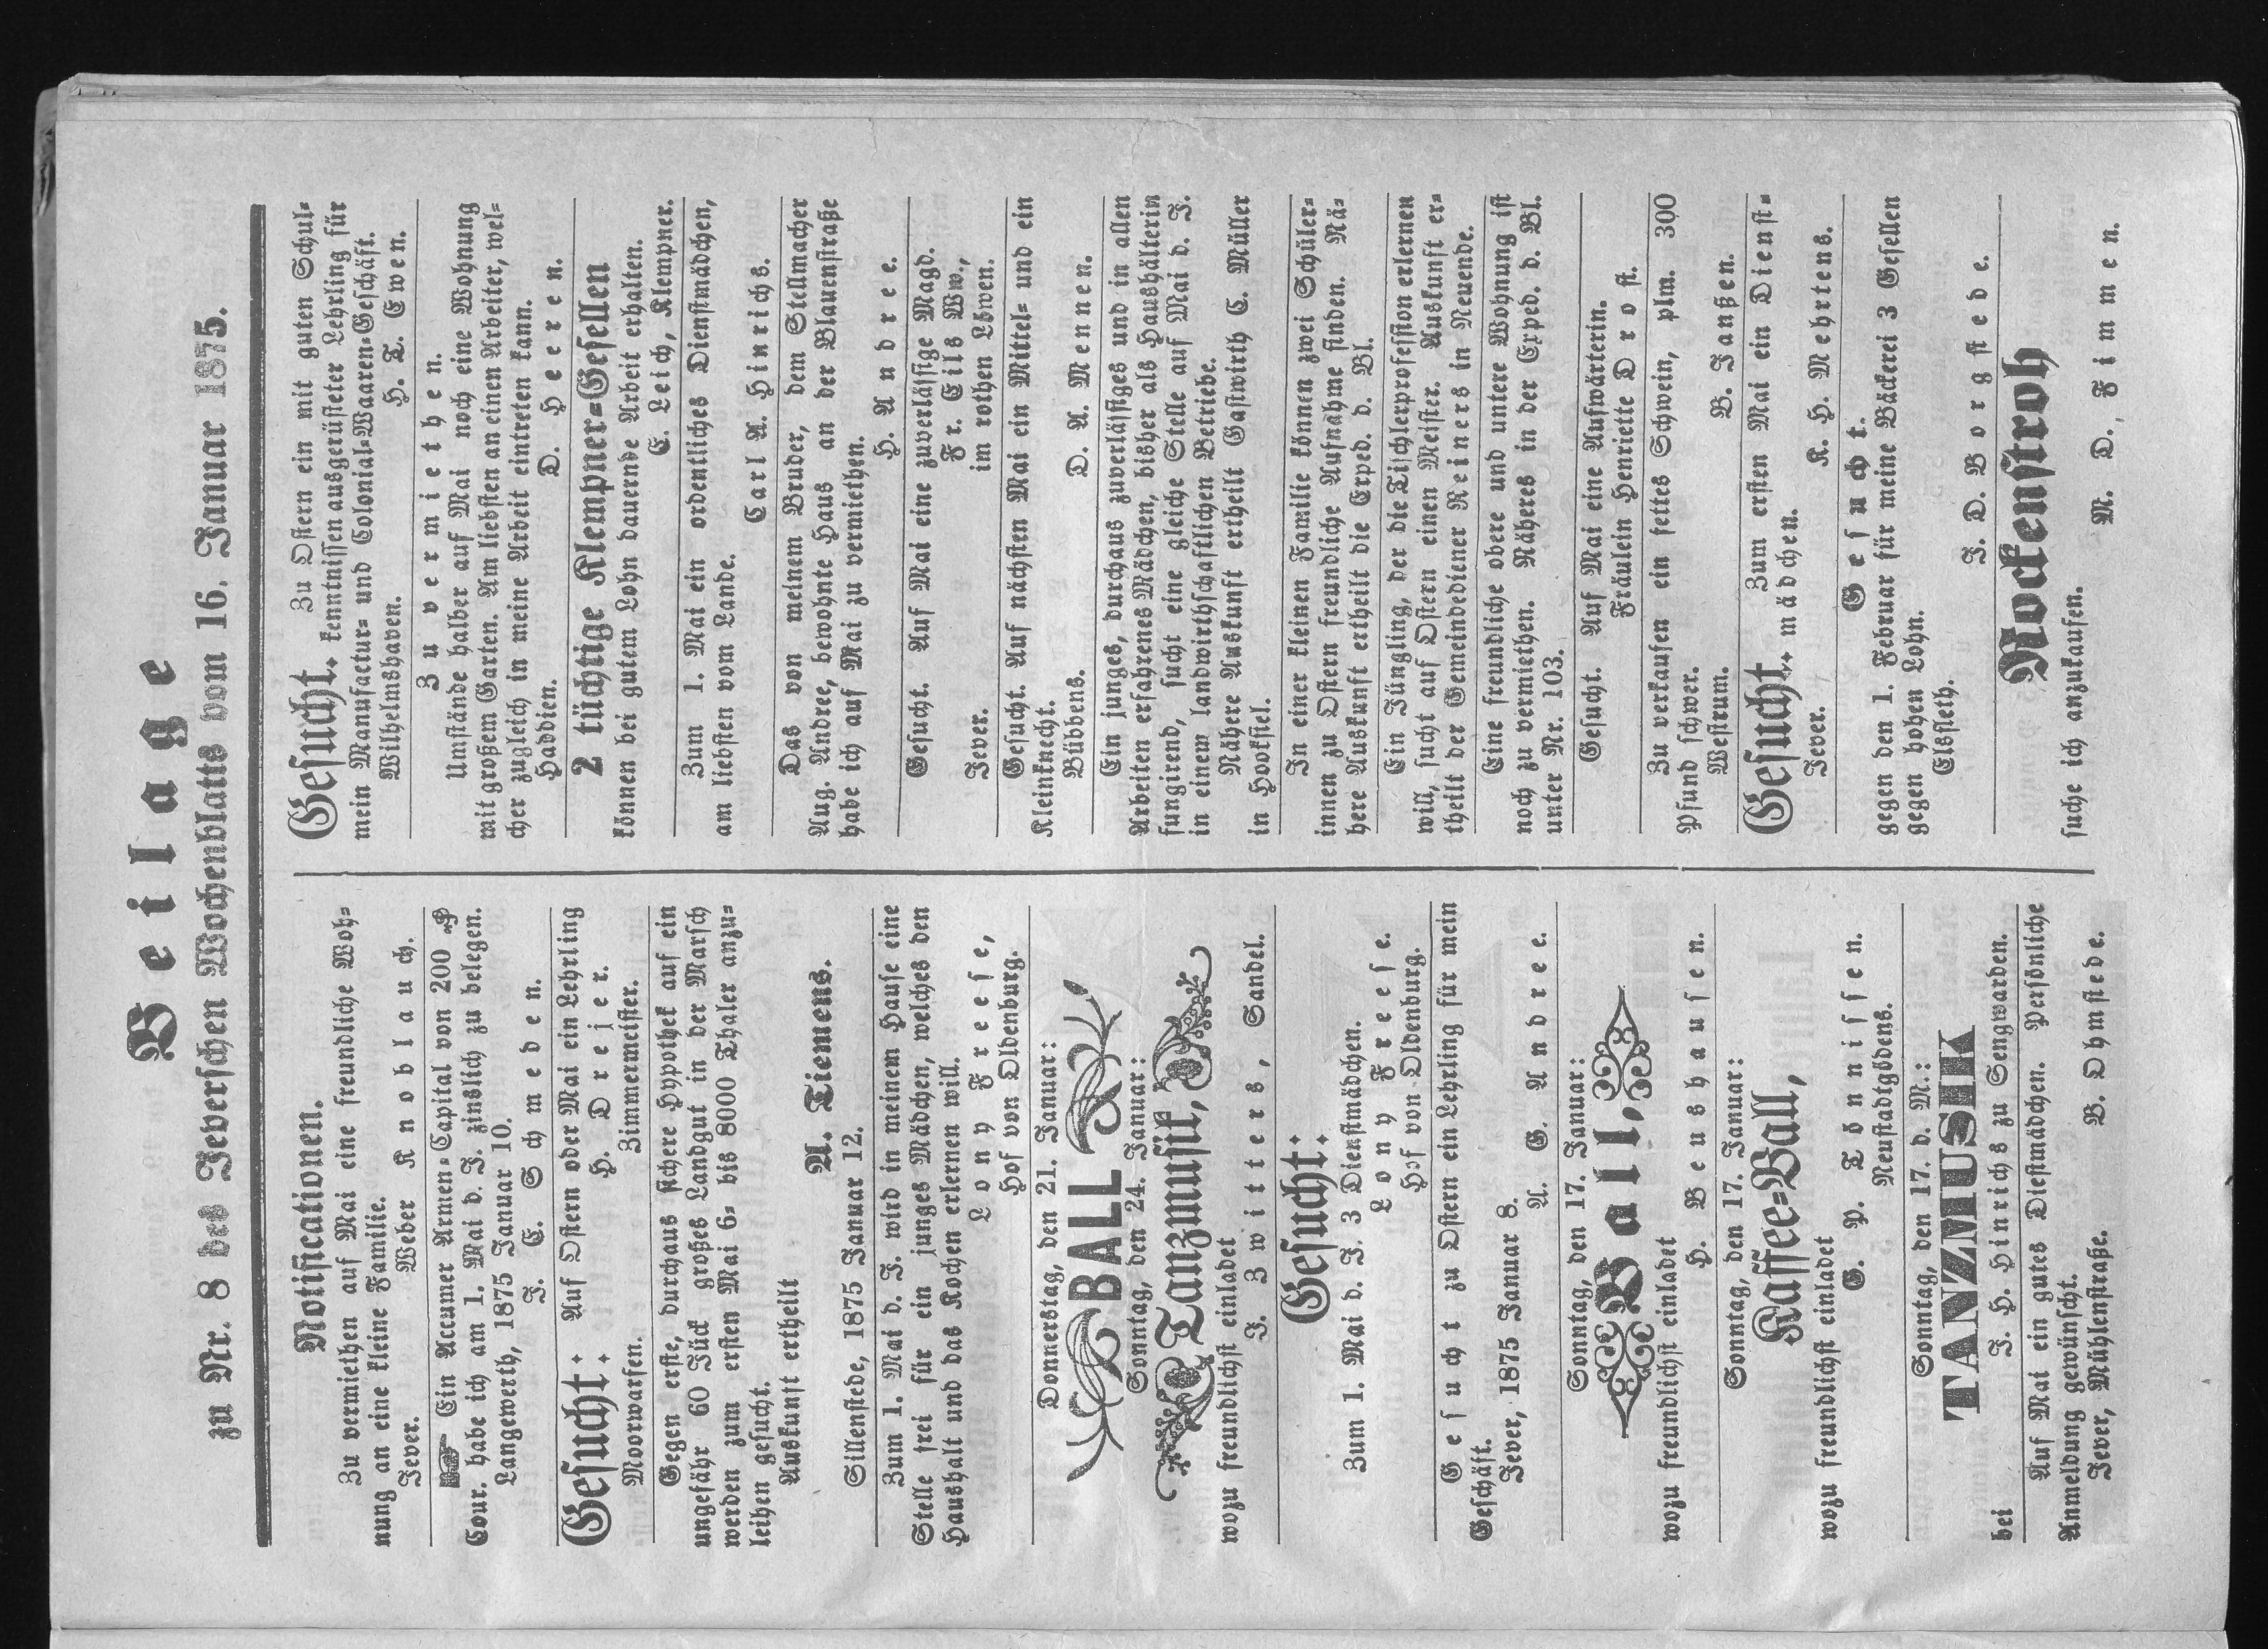 Beilage
zu Nr. 8 des Jeverschen Wochenblatts vom 16. Januar 1875.
Notificationen.
Zu vermiethen auf Mai eine freundliche Woh-
nung an eine kleine Familie.
Jever. Weber Knoblauch.
Ein Accumer Armen-Capital von 200 ₰
Cour. habe ich am 1. Mai d. J. zinslich zu belegen.
Langewerth, 1875 Januar 10.
J. E. Schmeden.
Gesucht. Auf Ostern oder Mai ein Lehrling
H. Drejer.
Moorwarfen. Zimmermeister.
Gegen erste, durchaus sichere Hypothek auf ein
ungefähr 60 Jück großes Landgut in der Marsch
werden zum ersten Mai 6- bis 8000 Thaler anzu-
leihen gesucht.
Auskunft ertheilt
A. Tiemens.
Sillenstede, 1875 Januar 12.
Zum 1. Mai d. J. wird in meinem Hause eine
Stelle frei für ein junges Mädchen, welches den
Haushalt und das Kochen erlernen will.
Lony Freese,
Hof von Oldenburg.
Donnerstag, den 21. Januar:
BALL
Sonntag, den 24. Januar:
Tanzmusik,
wozu freundlichst einladet
J. Zwitters, Sandel.
Gesucht:
Zum 1. Mai d. J. 3 Dienstmädchen.
Lony Freese.
Hof von Oldenburg.
Gesucht zu Ostern ein Lehrling für mein
Geschäft.
Jever, 1875 Januar 8.
A. G. Andree.
Sonntag, den 17. Januar:
Ball,
wozu freundlichst einladet
H. Benshausen.
Sonntag, den 17. Januar:
Kaffee-Ball,
wozu freundlichst einladet
G. P. Tönnissen.
Neustadtgödens.
Sonntag, den 17. d. M.:
TANZMUSIK
bei J. H. Hinrichs zu Sengwarden.
Auf Mai ein gutes Diestmädchen. Persönliche
Anmeldung gewünscht.
Jever, Mühlenstraße. B. Ohmstede.
Gesucht. Zu Ostern ein mit guten Schul-
kenntnissen ausgerüsteter Lehrling für
mein Manufactur- und Colonial-Waaren-Geschäft.
Wilhelmshaven. H. T. Ewen.
Zu vermiethen.
Umstände halber auf Mai noch eine Wohnung
mit großem Garten. Am liebsten an einen Arbeiter, wel-
cher zugleich in meine Arbeit eintreten kann.
Haddien. D. Heeren.
2 tüchtige Klempner-Gesellen
können bei gutem Lohn dauernde Arbeit erhalten.
E. Leich, Klempner.
Zum 1. Mai ein ordentliches Dienstmädchen,
am liebsten vom Lande.
Carl A. Hinrichs.
Das von meinem Bruder, dem Stellmacher
Aug. Andree, bewohnte Haus an der Blauenstraße
habe ich auf Mai zu vermiethen.
H. Andree.
Gesucht. Auf Mai eine zuverlässige Magd.
Fr. Eils Ww.,
Jever. im rothen Löwen.
Gesucht. Auf nächsten Mai ein Mittel- und ein
Kleinknecht.
Bübbens. D. A. Mennen.
Ein junges, durchaus zuverlässiges und in allen
Arbeiten erfahrenes Mädchen, bisher als Haushälterin
fungirend, sucht eine gleiche Stelle auf Mai d. J.
in einem landwirthschaftlichen Betriebe.
Nähere Auskunft ertheilt Gastwirth C. Müller
in Hooksiel.
In einer kleinen Familie können zwei Schüler-
innen zu Ostern freundliche Aufnahme finden. Nä-
here Auskunft ertheilt die Exped. d. Bl.
Ein Jüngling, der die Tischlerprofession erlernen
will, sucht auf Ostern einen Meister. Auskunft er-
theilt der Gemeindediener Reiners in Neuende.
Eine freundliche obere und untere Wohnung ist
noch zu vermiethen. Näheres in der Exped. d. Bl.
unter Nr. 103.
Gesucht. Auf Mai eine Aufwärterin.
Fräulein Henriette Drost.
Zu verkaufen ein fettes Schwein, plm. 300
Pfund schwer.
Westrum. B. Janßen.
Gesucht. Zum ersten Mai ein Dienst-
mädchen.
Jever. K. H. Mehrtens.
Gesucht.
gegen den 1. Februar für meine Bäckerei 3 Gesellen
gegen hohen Lohn.
Elsfleth.
J. D. Borgstede.
Rockenstroh
suche ich anzukaufen.
M. D. Fimmen.